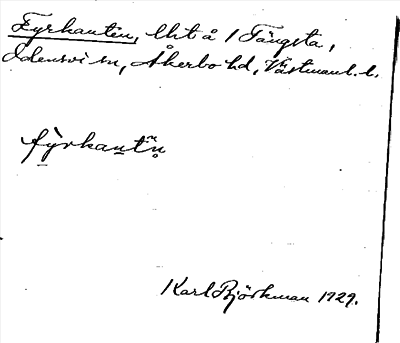 Fyrkanten, lht å 1 Tängsta,
Odensvi sn, Åkerbo hd, Västmanl. l.
fỳrkantn̥
Karl Björkman 1929.